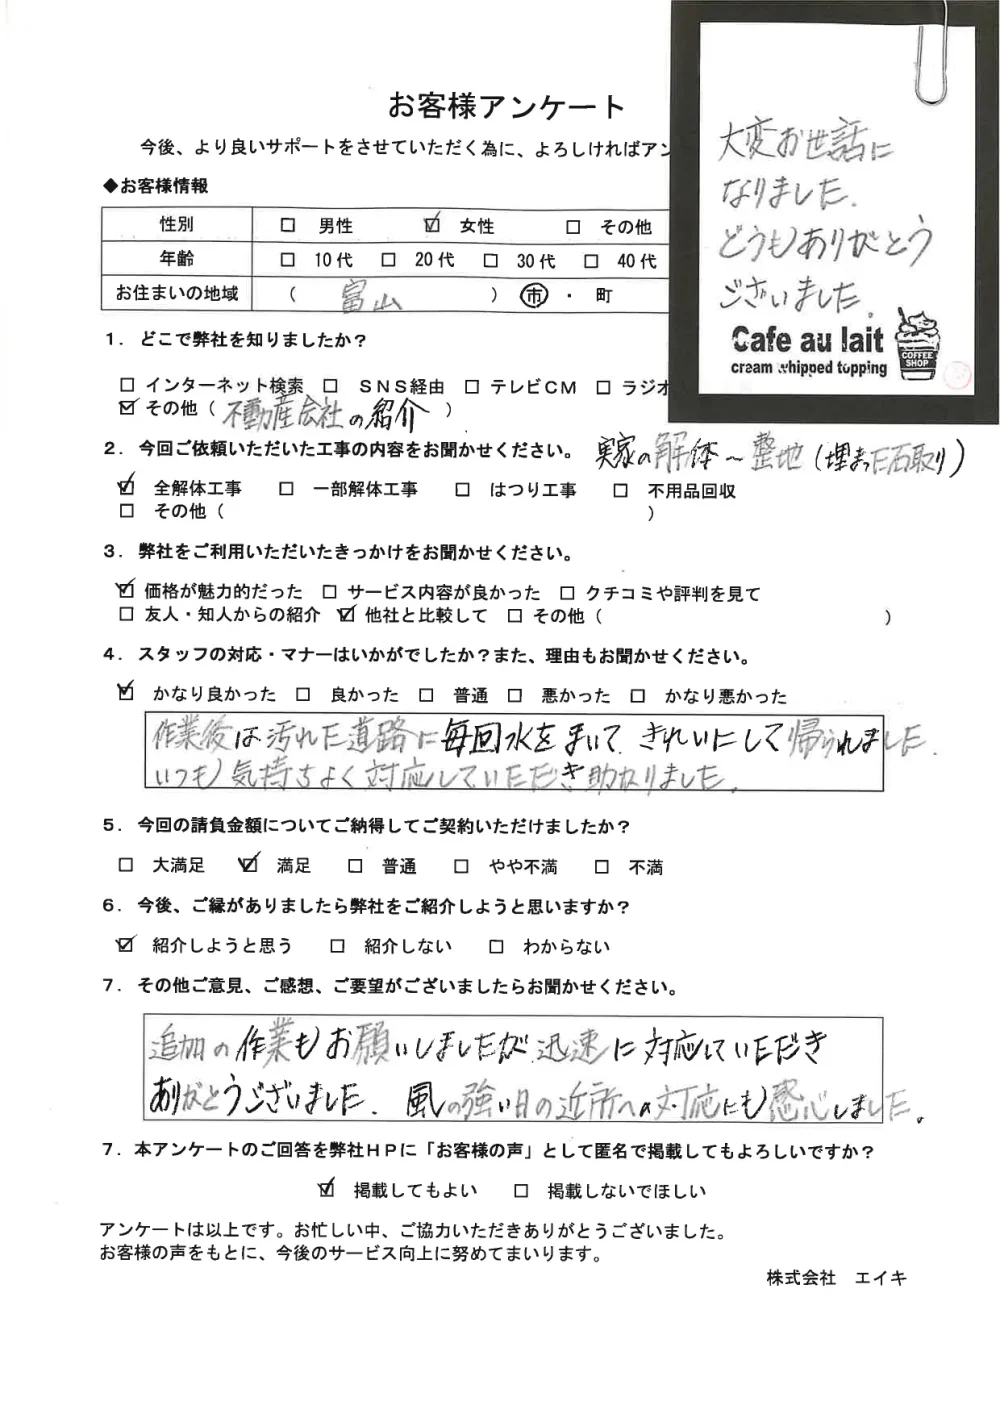 お客様アンケート
今後、より良いサポートをさせていただく為に、よろしければアン
◆お客様情報
性別 □ 男性 ☑ 女性 □ その他
年齢 □ 10代 □ 20代 □ 30代 □ 40代
お住まいの地域 ( 富山 ) ㊞市・町
大変お世話に
なりました.
どうもありがとう
ございました。
Cafe au lait
cream whipped topping
COFFEE
SHOP
1. どこで弊社を知りましたか?
□ インターネット検索 □ SNS経由 □ テレビCM □ ラジオ
☑ その他( 不動産会社の紹介 )
2. 今回ご依頼いただいた工事の内容をお聞かせください。 実家の解体~整地(埋まった石取り)
☑ 全解体工事 □ 一部解体工事 □ はつり工事 □ 不用品回収
□ その他( )
3. 弊社をご利用いただいたきっかけをお聞かせください。
☑ 価格が魅力的だった □ サービス内容が良かった □ クチコミや評判を見て
□ 友人・知人からの紹介 ☑ 他社と比較して □ その他( )
4. スタッフの対応・マナーはいかがでしたか?また、理由もお聞かせください。
☑ かなり良かった □ 良かった □ 普通 □ 悪かった □ かなり悪かった
作業後は汚れた道路に毎回水をまいて きれいにして帰られました.
いつも気持ちよく対応していただき助かりました.
5. 今回の請負金額についてご納得してご契約いただけましたか?
□ 大満足 ☑ 満足 □ 普通 □ やや不満 □ 不満
6. 今後、ご縁がありましたら弊社をご紹介しようと思いますか?
☑ 紹介しようと思う □ 紹介しない □ わからない
7. その他ご意見、ご感想、ご要望がございましたらお聞かせください。
追加の作業もお願いしましたが迅速に対応していただき
ありがとうございました. 風の強い日の近所への対応にも感心しました。
7. 本アンケートのご回答を弊社HPに「お客様の声」として匿名で掲載してもよろしいですか?
☑ 掲載してもよい □ 掲載しないでほしい
アンケートは以上です。お忙しい中、ご協力いただきありがとうございました。
お客様の声をもとに、今後のサービス向上に努めてまいります。
株式会社 エイキ